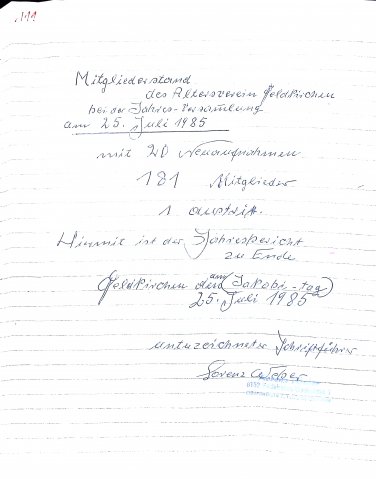 111
Mitgliederstand
des Altersverein Feldkirchen
bei der Jahres-Versammlung
am 25. Juli 1985
mit 20 Neuaufnahmen
181 Mitglieder
1 austritt.
Hiemit ist der Jahresbericht
zu Ende
Feldkirchen den am (Jakobi-tag)
25. Juli 1985
unterzeichneter Schriftführer
Lorenz